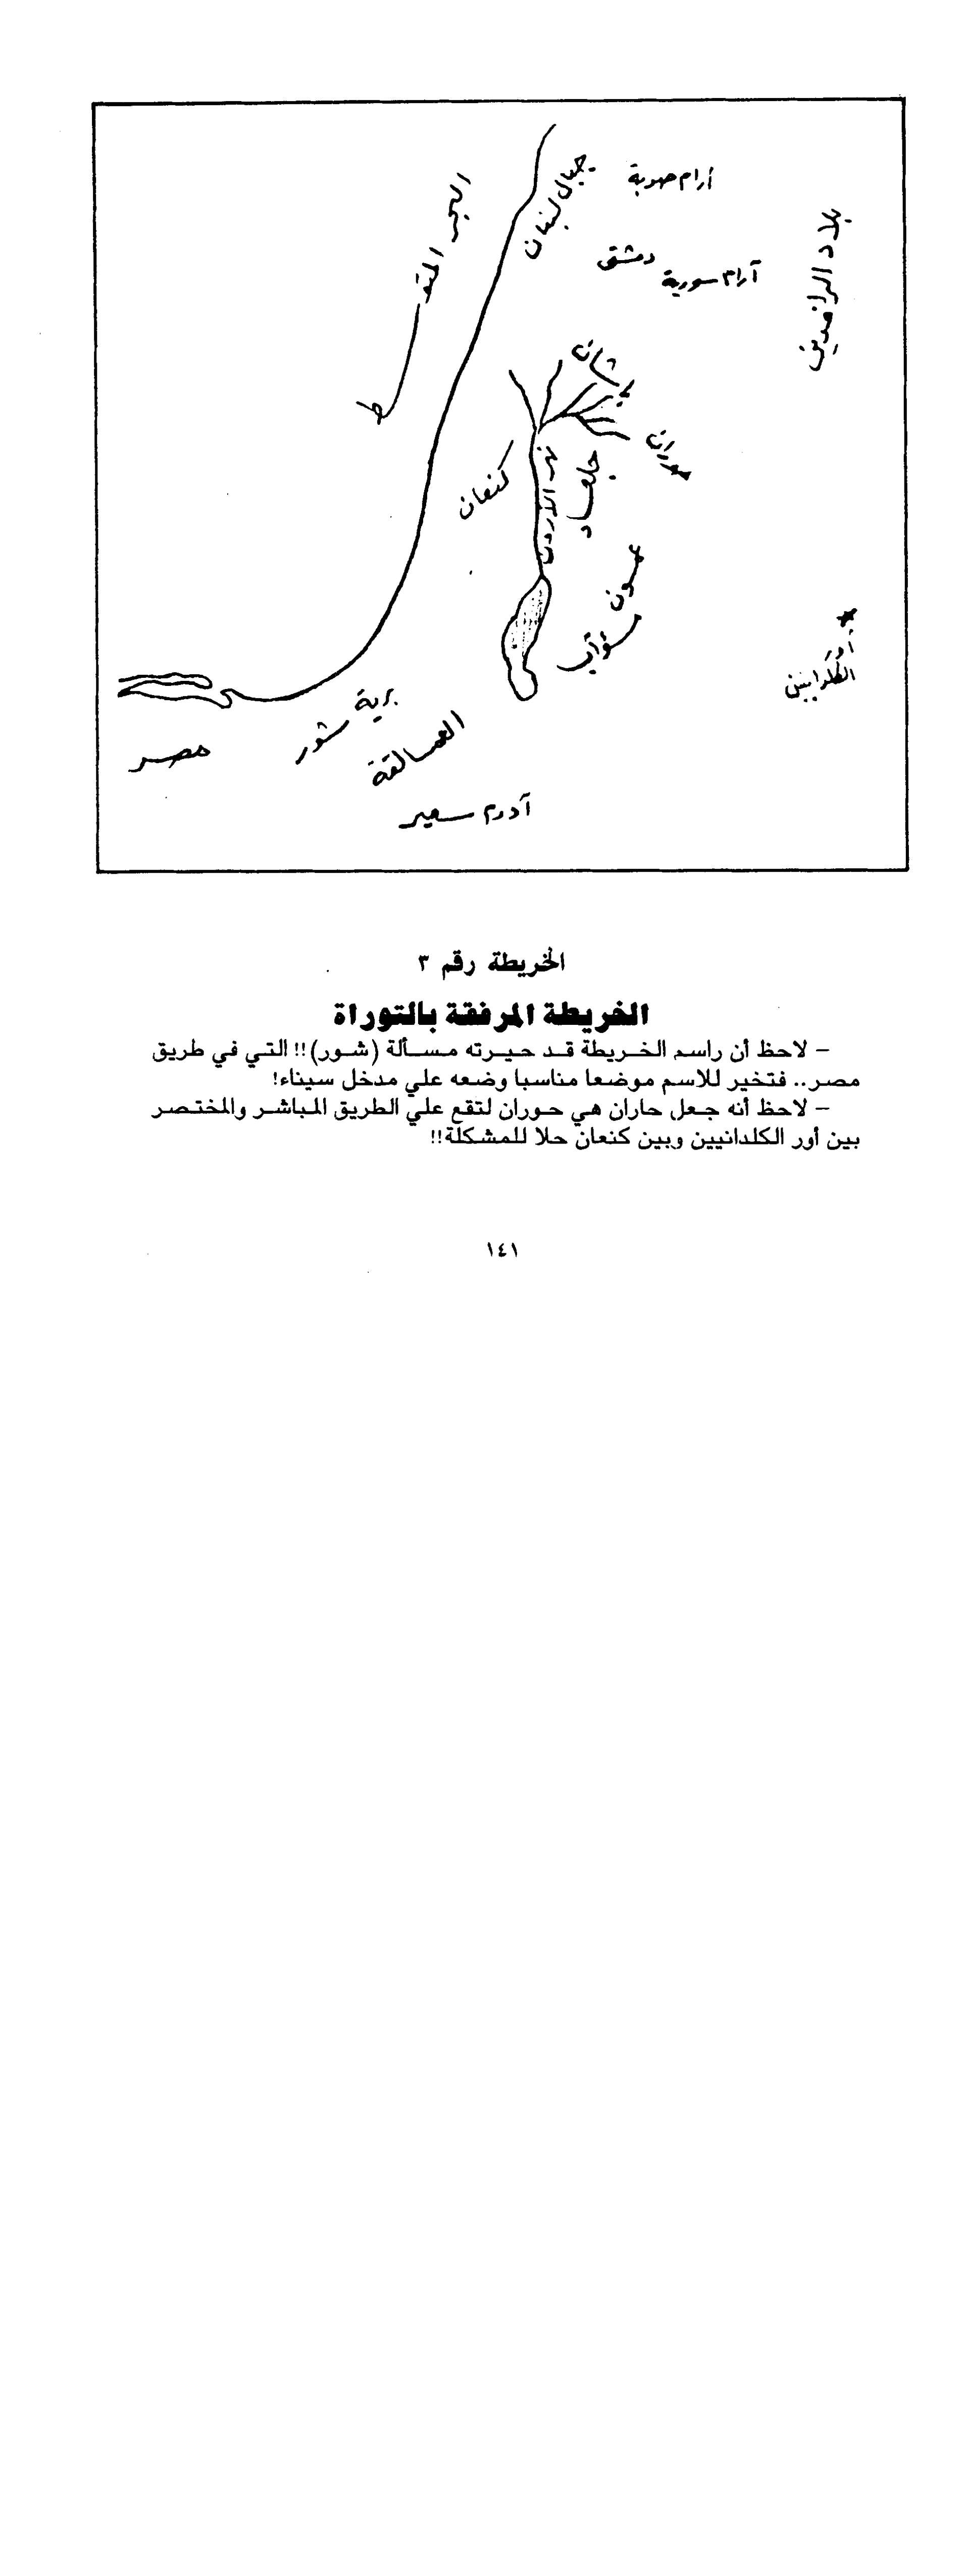 البحر المتوسط
جبال لبنان
أرام صوبة
دمشق
آرام سورية
بلاد الرافدين
باشان
حوران
نهر الأردن
جلعاد
كنعان
عمون
مؤاب
أور
الكلدانيين
برية شور
العمالقة
مصر
آدوم سعير
الخريطة رقم ٣
الخريطة المرفقة بالتوراة
– لاحظ أن راسم الخريطة قد حيرته مسألة (شور)!! التي في طريق
مصر.. فتخير للاسم موضعا مناسبا وضعه علي مدخل سيناء!
– لاحظ أنه جعل حاران هي حوران لتقع علي الطريق المباشر والمختصر
بين أور الكلدانيين وبين كنعان حلا للمشكلة!!
١٤١